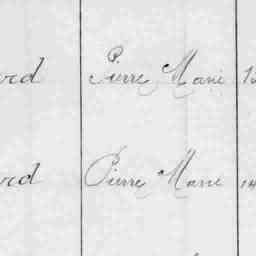 rd Pierre Marie 1
rd Pierre Marie 14